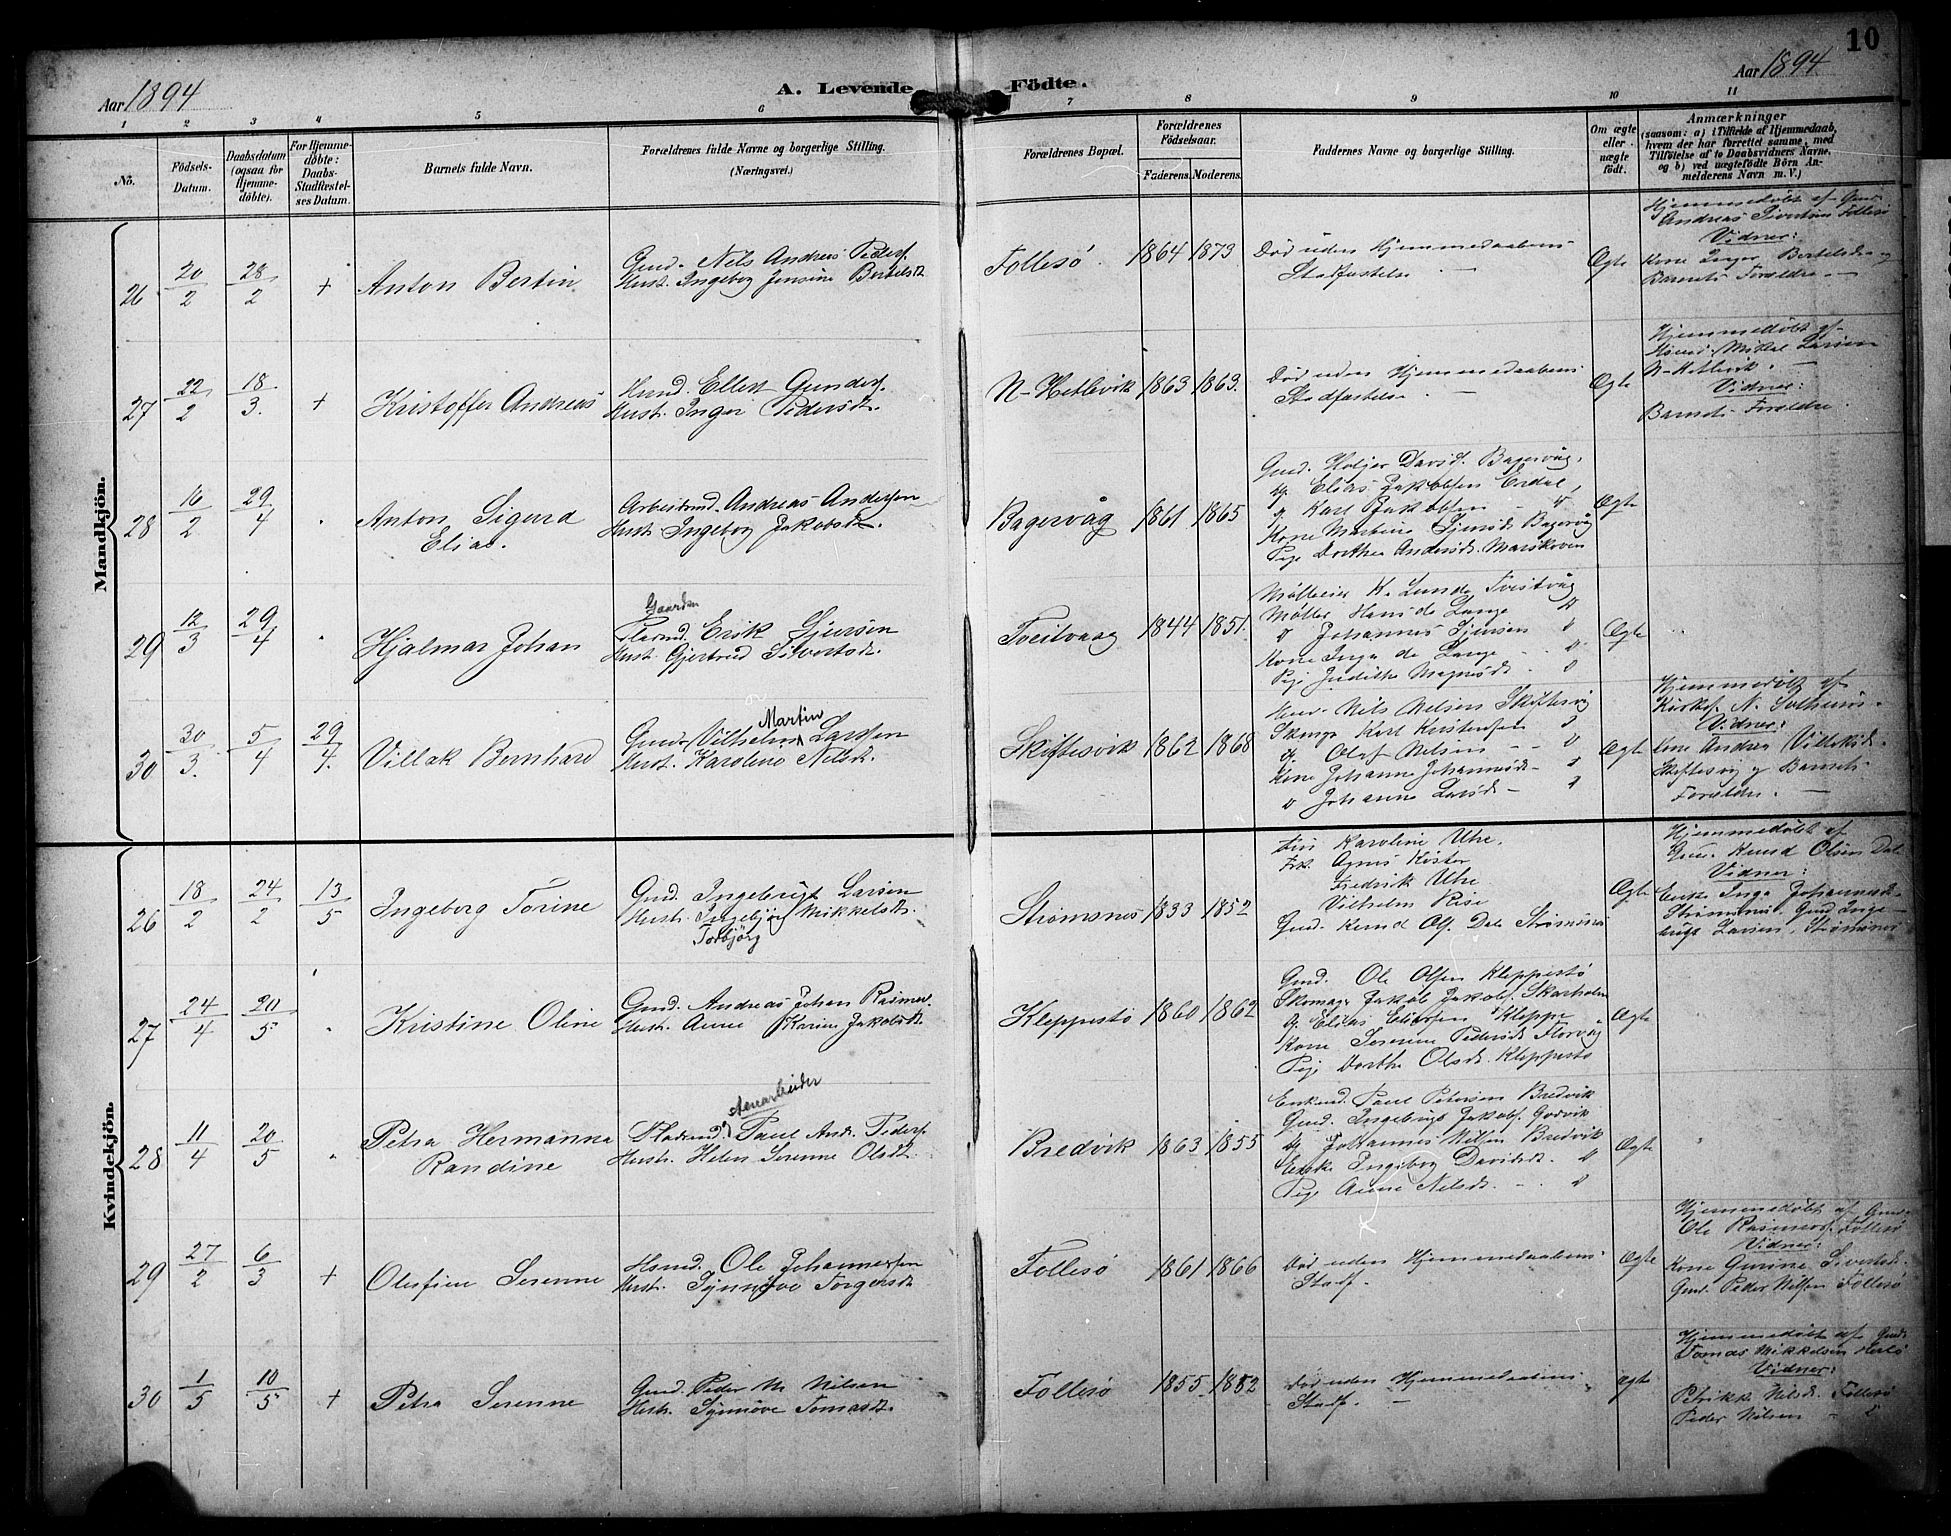 10
Aar 1894
A. Levende Födte.
Aar 1894
1 2 3 4 5 6 7 8 9 10 11
No.
Födsels-Datum.
Daabsdatum (ogsaa for Hjemme-döbte).
For Hjemme-döbte: Daabs-Stadfæstel-ses Datum.
Barnets fulde Navn.
Forældrenes fulde Navne og borgerlige Stilling. (Næringsvei.)
Forældrenes Bopæl.
Forældrenes Födselsaar.
Faderens. Moderens.
Faddernes Navne og borgerlige Stilling.
Om ægte eller uægte födt.
Anmærkninger
(saasom: a) i Tilfælde af Hjemmedaab, hvem der har forrettet samme, med Tilföielse af to Daabsvidners Navne, og b) ved uægtefödte Börn An-melderens Navn m. V.)
Mandkjön.
26 20/2 28/2 + Anton Bertin
Gmd. Nels Andreas Peders.
Hust. Ingebog Jensine Bertelsdt.
Follesø 1864 1873
Död uden Hjemmedaabens
Stadfæstelse
Ægte
Hjemmedöbt af Gmd.
Andreas Follesø
Vidner:
Kone Inger Bertelsd. og
Barnets Forældre.
27 22/2 18/3. + Kristoffer Andreas
Hmd. Ellert Gunders.
Hust. Inger Pedersdt.
N-Hetlevik 1863 1863.
Död uden Hjemmedaabens
Stadfæstelse
Ægte
Hjemmedöbt af
Hmd. Mikal Larsen
N-Hetlevik.
Vidner:
Barnets Forældre.
28 16/2 29/4 Anton Sigurd
Elias.
Arbeidsmd. Andreas Andersen
Hust. Ingebog Jakobsdt.
Bagervåg 1861 1865
Gmd. Holger Davids. Bagervåg.
Elias Jakobsen Erdal,
Karl Jakobsen
Kone Martine Bagervåg
Pige Dorthea Andersd.
Ægte
29 12/3 29/4 Hjalmar Johan
Gaardm
Erik Sjursen
Hust. Gjertrud Sivertsdt.
Tveitvaag 1844 1851.
K. Lunde Tveitvåg
Möller Hans de Lange "
" Johannes Sjursen "
Kone Inga de Lange "
Pige Judithe Magnusd. "
Ægte
30 30/3. 5/4 29/4. Villak Bernhard
Martin
Gmd. Vilhelm Larsen
Hust. Karoline Nelsdt.
Skiftesvik 1862 1868
Nils Nelsen Skiftesvig
Karl Kristensen "
Olaf Nelsen "
Kone Johanne Johannesd. "
" Johanne Larsd. "
Ægte
Hjemmedöbt af
Kirkes. N. Solheims
Vidner:
Kone Andrea
Skiftesvig og Barnets
Forældre.
Kvindekjön.
26 18/2 24/2 13/5 Ingeborg Torine
Gmd. Ingebrigt Larsen
Hust. Ingebjörg Mikkelsdt.
Torbjörg
Strømsnes 1833 1852
Karoline Uhre.
Frk. Agnes Köster
Fredrik Uhre.
Vilhelm
Gmd. Knud Ols. Dale Strømsnes
Ægte
Hjemmedöbt af
Gmd. Knud Olsen Dale
Vidner:
Enke Inga Johannesd.
Strømsnes, Gmd. Inge-
brigt Larsen, Strømsnes
27 24/4 20/5 Kristine Oline
Gmd. Andreas Johan Rasmus.
Hust. Anne Karine Jakobsdt.
Kleppestø 1860 1862
Gmd. Ole Olsen Kleppestø
Skomag. Jakob Jakobs. Skarholm
Elias Eliassen Kleppe
Kone Serenne Pedersd. Florvåg
Pige Dorthe Olsd. Kleppestø
Ægte
28 11/4 20/5 Petra Hermanna
Randine
Pladsmd. Paul And. Peders.
Hust. Helen Serenne Olsdt.
Bredvik 1863 1855
Enkemd. Paul Petersen Bredvik
Gmd. Ingebrigt Jakobs. Godvik
Johannes Nilsen Bredvik
Enke Ingebog Davidsd. "
Pige Anne Nelsd. "
Ægte
29 27/2 6/3 + Olefine Serenne
Hsmd. Ole Johannessen
Hust. Synnøve Torgersdt.
Follesø 1861 1866
Död uden Hjemmedaabens
Stadf.
Ægte
Hjemmedöbt af Gmd.
Ole Rasmus. Follesø
Vidner:
Kone Gurine Sivertsd.
Gmd. Peder Nilsen Follesø
30 1/5 10/5 + Petra Serenne
Gmd. Peder M. Nilsen
Hust. Synnøve Tomasdt.
Follesø 1855 1852
Död uden Hjemmedaabens
Stadf.
Ægte
Hjemmedöbt af Gmd.
Tomas Mikkelsen Herlø
Vidner:
Petrikke Nelsd. Follesø
Peder Nilsen "